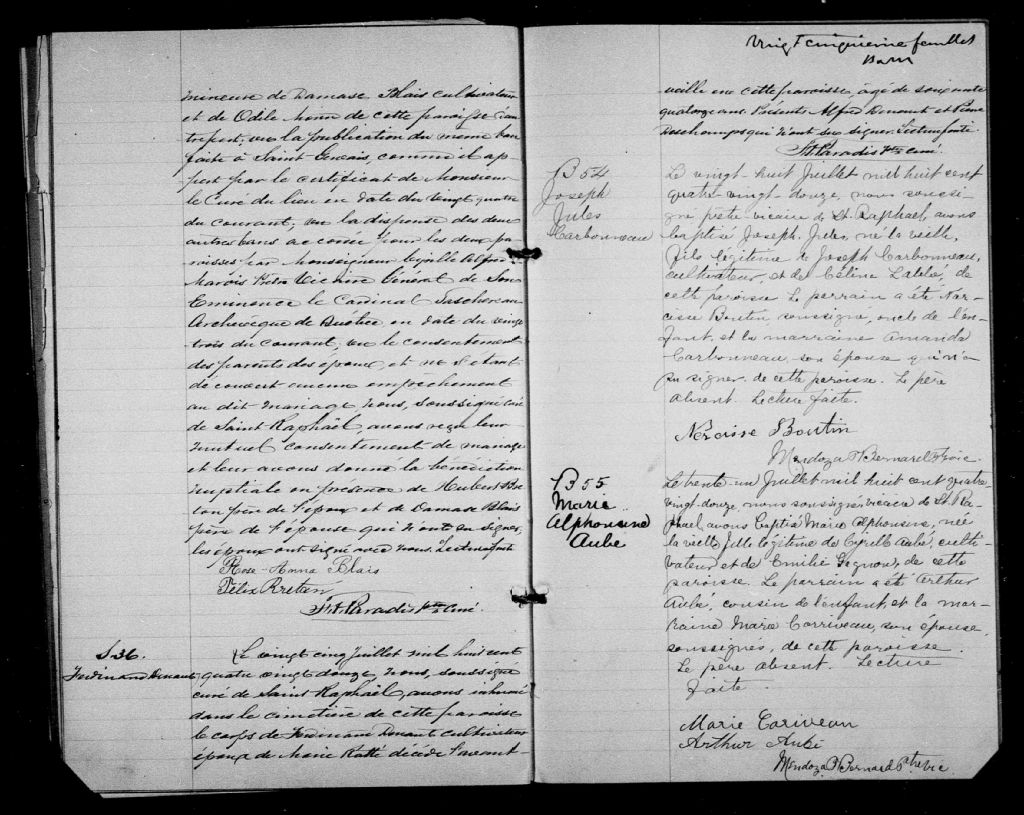 mineure de Damase Blais cultivateur
et de Odile Morin de cette paroisse d'au-
tre part; vu la publication du même ban
faite à Saint Gervais, comme il ap-
pert par le certificat de Monsieur
le Curé du lieu en date du vingt quatre
du courant; vu la dispense des deux
autres bans accordée pour les deux pa-
roisses par Monseigneur Cyrille Alfred
Marois Ptre Vicaire Général de Son
Eminence le Cardinal Taschereau
Archevêque de Québec en date du vingt
trois du courant; vu le consentement
des parents des époux, et ne s'étant
découvert aucun empêchement
au dit mariage Nous, soussigné curé
de Saint Raphaël, avons reçu leur
mutuel consentement de mariage
et leur avons donné la bénédiction
nuptiale en présence de Hubert
père de l'époux et de Damase Blais
père de l'épouse qui n'ont su signer,
les époux ont signé avec nous. Lecture faite
Rose-Anna Blais
Félix Bretan
Paradis Ptre Curé.
S 36.
Ferdinand
Le vingt cinq Juillet mil huit cent
quatre vingt douze, Nous, soussigné
curé de Saint Raphaël, avons inhumé
dans le cimetière de cette paroisse
le corps de Ferdinand cultivateur
époux de Marie Ratté décédé l'avant-
Vingt cinquième feuillet
veille en cette paroisse, âgé de soixante
quatorze ans. Présents Alfred et Pierre
Deschamps qui n'ont su signer. Lecture faite.
Paradis Ptre Curé.
B 54
Joseph
Jules
Carbonneau
Le vingt-huit Juillet mil huit cent
quatre-vingt-douze, nous soussi-
gné prêtre vicaire de St. Raphael, avons
baptisé Joseph Jules, né la veille,
fils légitime de Joseph Carbonneau,
cultivateur, et de Céline Labbé, de
cette paroisse. Le parrain a été Nar-
cisse Boutin soussigné, oncle de l'en-
fant, et la marraine Amanda
Carbonneau, son épouse qui n'a
su signer, de cette paroisse. Le père
absent. Lecture faite.
Narcisse Boutin
Mendoza P Bernard Ptre vic.
B 55
Marie
Alphonsine
Aubé
Le trente-un Juillet mil huit cent quatre-
vingt-douze, nous soussigné vicaire de St. Ra-
phael, avons baptisé Marie Alphonsine, née
la veille, fille légitime de Cyrille Aubé, culti-
vateur et de Emilie Gagnon, de cette
paroisse. Le parrain a été Arthur
Aubé, cousin de l'enfant, et la mar-
raine Marie Corriveau, son épouse,
soussignés, de cette paroisse.
Le père absent. Lecture
faite.
Marie Coriveau
Arthur Aubé
Mendoza P Bernard Ptre vic